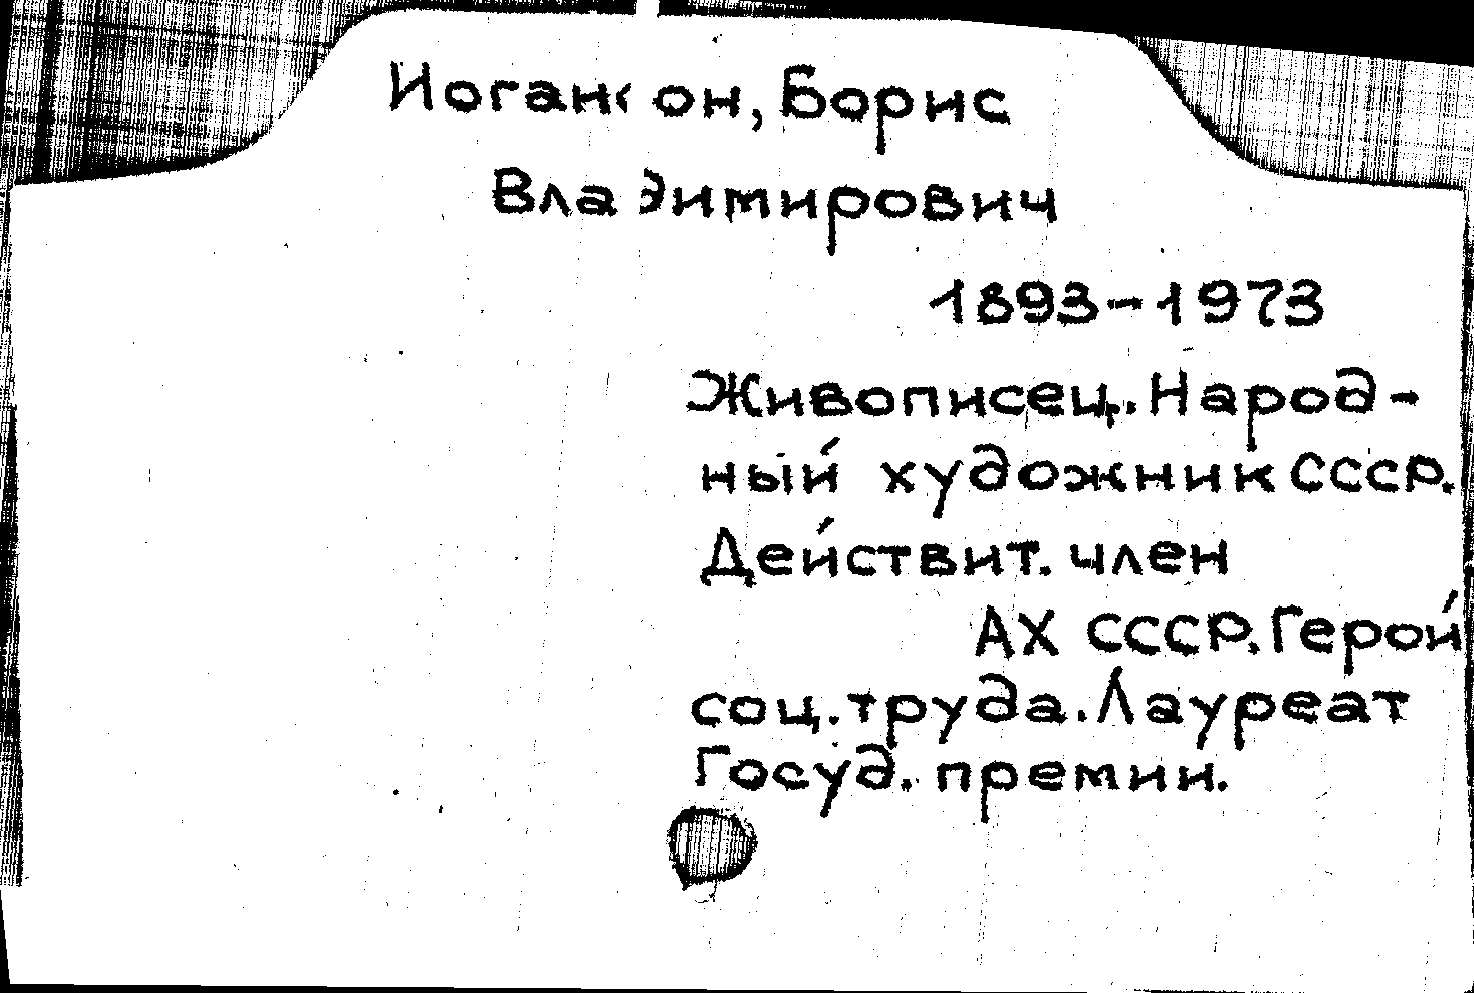 Иогансон, Борис
Владимирович
1893-1973
Живописец. Народ-
ный художник СССР.
Действит. член
АХ СССР. Герой
соц. труда. Лауреат
Госуд. премии.